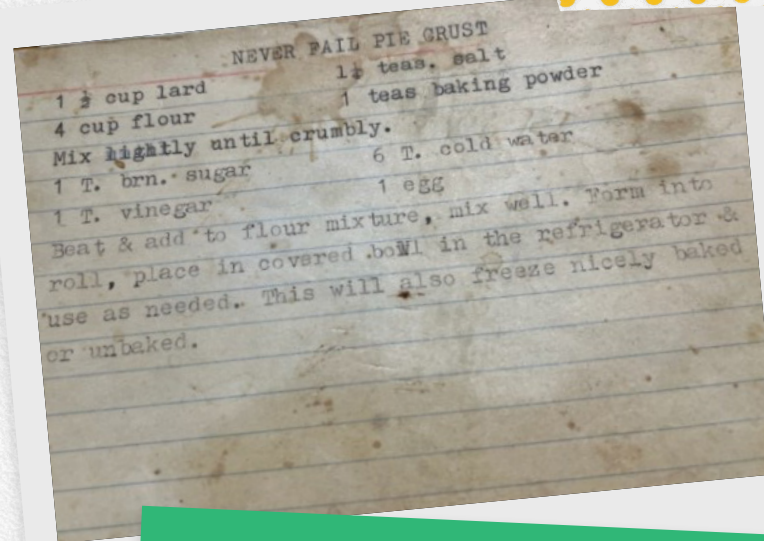 NEVER FAIL PIE CRUST
1 ½ cup lard 1½ teas. salt
4 cup flour 1 teas baking powder
Mix lightly until crumbly.
1 T. brn. sugar 6 T. cold water
1 T. vinegar 1 egg
Beat & add to flour mixture, mix well. Form into
roll, place in covered bowl in the refrigerator &
use as needed. This will also freeze nicely baked
or unbaked.